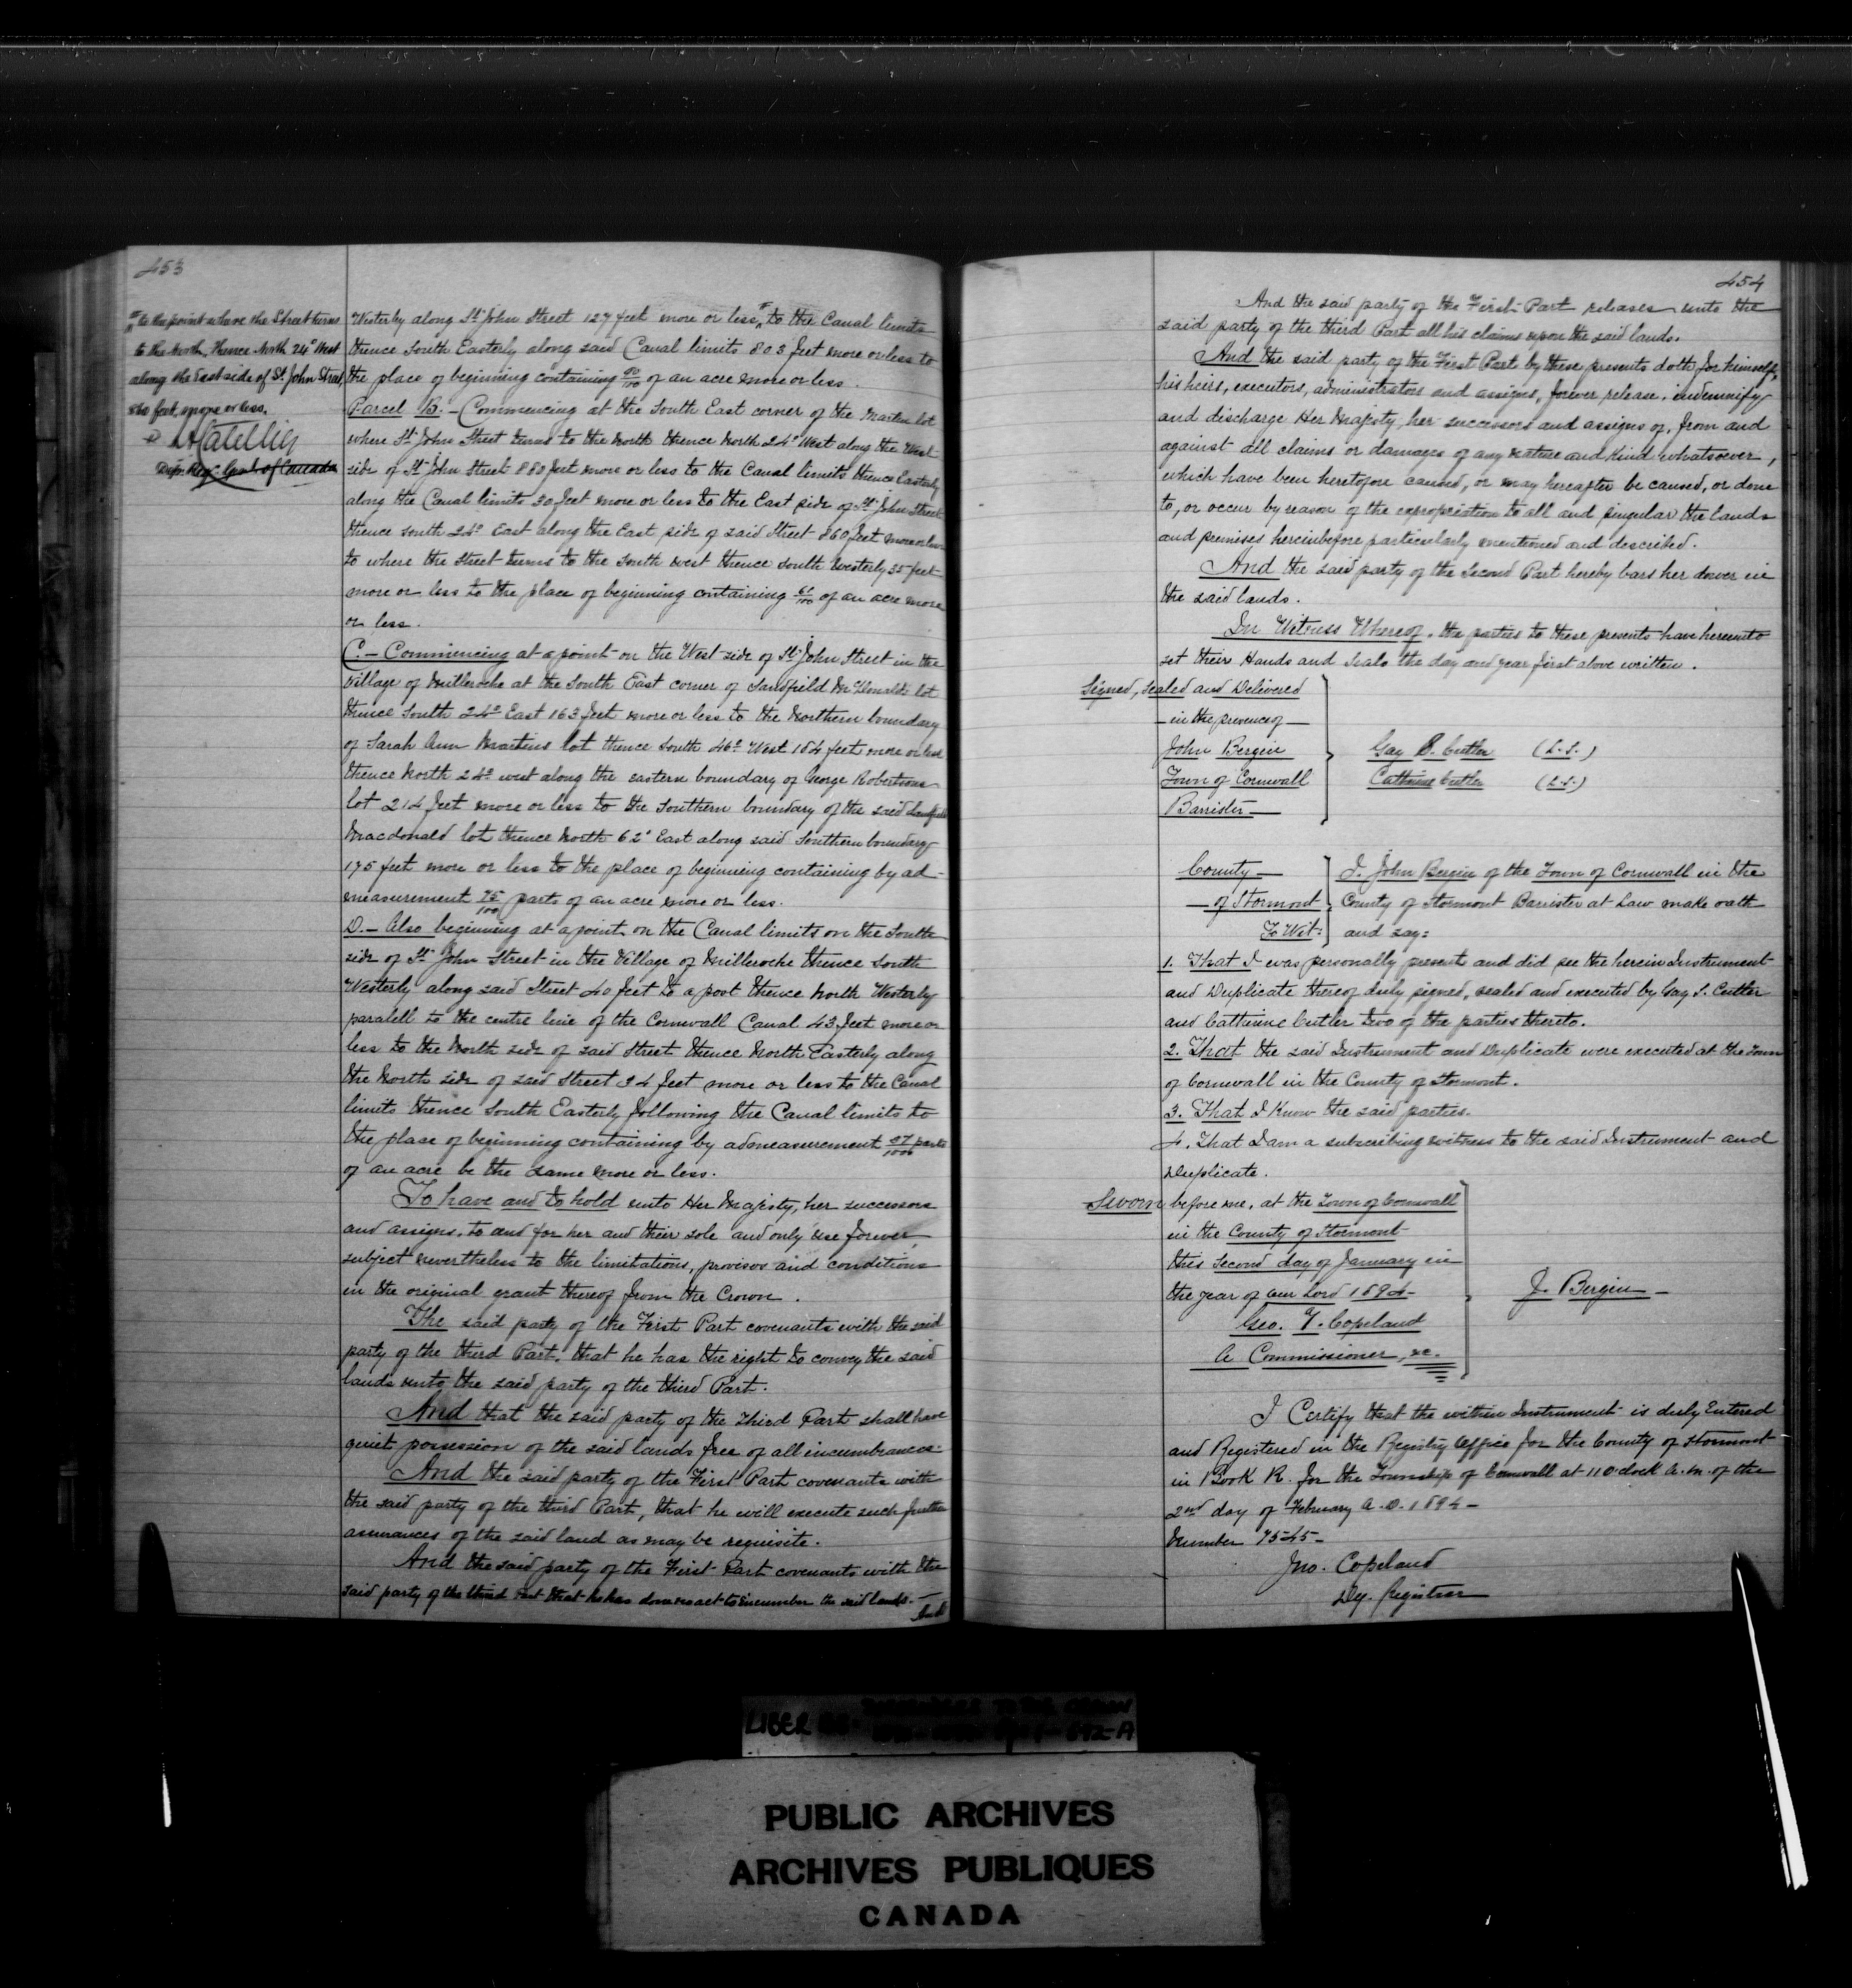 453
to the point where the Street turns
to the North, thence North 24° West
along the East side of St. John Street
feet, more or less.
Depy. Regr. Genl. of Canada
Westerly along St. John Street 127 feet more or less, to the Canal limits
thence South Easterly along said Canal limits 803 feet more or less to
the place of beginning containing 90/100 of an acre more or less.
Parcel B. - Commencing at the South East corner of the Martin lot
where St. John Street turns to the North thence North 24° West along the West
side of St. John Street 880 feet more or less to the Canal limits thence Easterly
along the Canal limits 30 feet more or less to the East side of St. John Street
thence South 24° East along the East side of said Street 860 feet more or less
to where the Street turns to the South West thence South Westerly 35 feet
more or less to the place of beginning containing 61/100 of an acre more
or less.
C. - Commencing at a point on the West side of St. John Street in the
Village of Milleroche at the South East corner of Sandfield McDonalds lot
thence South 24° East 163 feet more or less to the Northern boundary
of Sarah Ann Martins lot thence South 46° West 184 feet more or less
thence North 24° west along the eastern boundary of George Robertsons
lot 214 feet more or less to the Southern boundary of the said Sandfield
Macdonald lot thence North 62° East along said Southern boundary
175 feet more or less to the place of beginning containing by ad-
measurement 75/100 parts of an acre more or less.
D. - Also beginning at a point on the Canal limits on the South
side of St. John Street in the Village of Milleroche thence South
Westerly along said Street 40 feet to a post thence North Westerly
paralell to the centre line of the Cornwall Canal 43 feet more or
less to the North side of said Street thence North Easterly along
the North side of said Street 34 feet more or less to the Canal
limits thence South Easterly following the Canal limits to
the place of beginning containing by admeasurement 37/1000 parts
of an acre be the same more or less.
To have and to hold unto Her Majesty, her successors
and assigns, to and for her and their sole and only use forever,
subject nevertheless to the limitations, provisos and conditions
in the original grant thereof from the Crown.
The said party of the First Part covenants with the said
party of the third Part, that he has the right to convey the said
lands unto the said party of the third Part.
And that the said party of the Third Part shall have
quiet possession of the said lands free of all incumbrances.
And the said party of the First Part covenants with
the said party of the third Part, that he will execute such further
assurances of the said land as may be requisite.
And the said party of the First Part covenants with the
said party of the third Part that he has done no act to incumber the said lands.
And
454
And the said party of the First Part releases unto the
said party of the third Part all his claims upon the said lands.
And the said party of the First Part by these presents doth for himself,
his heirs, executors, administrators and assigns, forever release, indemnify
and discharge Her Majesty, her successors and assigns of, from and
against all claims or damages of any nature and kind whatsoever,
which have been heretofore caused, or may hereafter be caused, or done
to, or occur by reason of the expropriation to all and singular the lands
and premises hereinbefore particularly mentioned and described.
And the said party of the Second Part hereby bars her dower in
the said lands.
In Witness Whereof, the parties to these presents have hereunto
set their Hands and Seals the day and year first above written.
Signed, Sealed and Delivered
- in the presence of -
John Bergin
Town of Cornwall
Barrister -
Gay S. Cutler (L.S.)
Catherine Cutler (L.S.)
County -
- of Stormont
To Wit:
I, John Bergin of the Town of Cornwall in the
County of Stormont Barrister at Law make oath
and say:
1. That I was personally present and did see the herein Instrument
and Duplicate thereof duly signed, sealed and executed by Gay S. Cutler
and Catherine Cutler two of the parties thereto.
2. That the said Instrument and Duplicate were executed at the Town
of Cornwall in the County of Stormont.
3. That I Know the said parties.
4. That I am a subscribing witness to the said Instrument and
Duplicate.
Sworn before me, at the Town of Cornwall
in the County of Stormont
this Second day of January in
the year of Our Lord 1894-
Geo. F. Copeland
A Commissioner, &c.
J. Bergin -
I Certify that the within Instrument is duly Entered
and Registered in the Registry Office for the County of Stormont
in Book R. for the Township of Cornwall at 11 O'clock A.M. of the
2nd day of February A.D. 1894-
Number 7545-
Jno. Copeland
Dy. Registrar
LIBER
PUBLIC ARCHIVES
ARCHIVES PUBLIQUES
CANADA